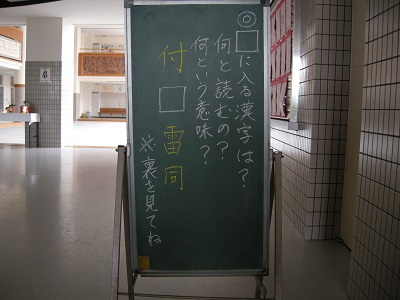 ◎□に入る漢字は？
何と読むの？
何という意味？
付□雷同
※裏を見てね